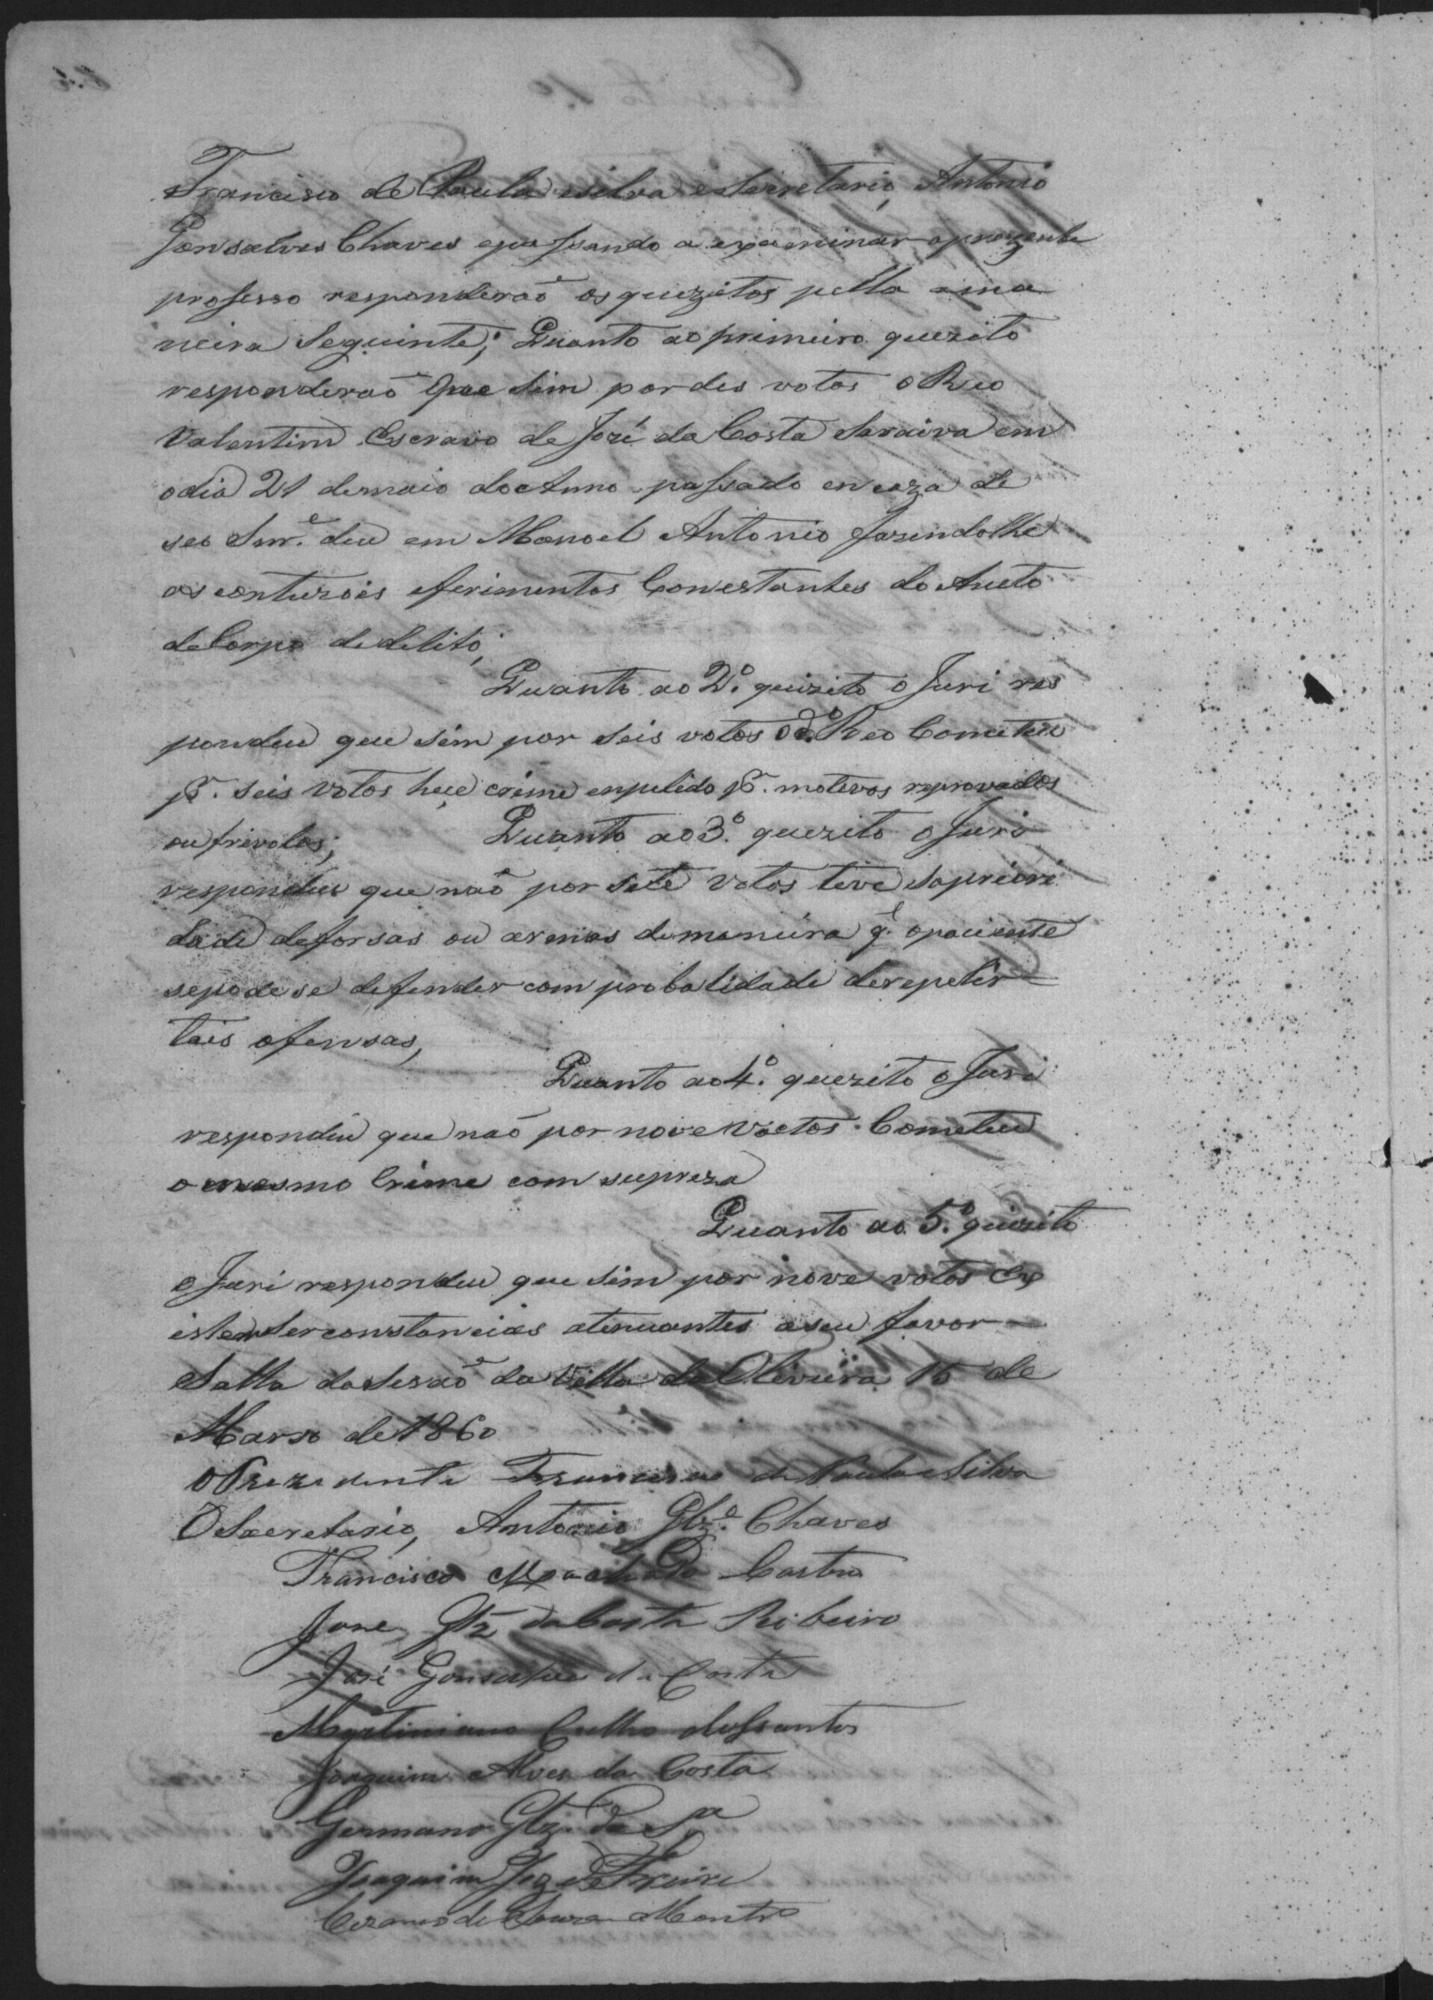 Francisco de Paula esilva eSecretario, Antonio
Gonsalves Chaves epassando a expaminar oprezente
prosesso responderaõ os quezitos pella ma
neira Seguinte; Quanto ao primeiro quezito
responderaõ que sim por des votos o Reo
Valentim Escravo de José da Costa Saraiva em
odia 21 demaio doAnno passado en caza de
seo Snr.e deu em Manoel Antonio fazendolhe
as contuzois eferimentos Constantes do Aucto
deCorpo dedelito;
Quanto ao 2.º quizito o Juri res
pondeu que sim por seis votos o d.º Reo Cometeu
pr. seis votos hece crime enpelido pr. motivos reprovados
ou frivolos; Quanto ao 3.º quezito o Juri
respondeu que naõ por sete votos teve sopriori
dade deforsas ou armas demaneira q.e opaciente
sepodese defender com probalidade derepetir
tais ofensas,
Quanto ao 4.º quezito o Juri
respondeu que naõ por nove voctos Cometeu
o mesmo Crime com supreza
Quanto ao 5.º quizito
o Juri respondeu que sim por nove votos Ex
istem Serconstancias atenuantes aseu favor
Salla da Sesaõ da Villa da Oliveira 15 de
Marso de 1860
O Prezedente Francisco de Paula e Silva
O Secretario, Antonio Glz.e Chaves
Francisco Machado Castro
Jose Glz da Costa Ribeiro
José Gonsalves da Costa
Martiniano Culho dosSantos
Joaquim Alves da Costa
Germano Glz. Da Sa
Joaquim Joze Freire
de Souza